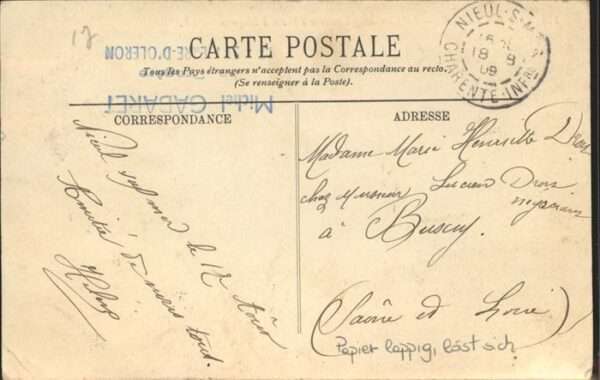 17
CARTE POSTALE
Tous les Pays étrangers n'acceptent pas la Correspondance au recto.
(Se renseigner à la Poste).
-D'OLERON
Michel CADARET
NIEUL-S-M
18 8
09
CHARENTE-INFRE
CORRESPONDANCE
ADRESSE
Nieul sur mer le 12 Août
Amitié de nous tous.
Madame Marie Henriette Drois
chez Monsieur Lucien Drois
à Buxy
(Saône et Loire)
Papier lappig, löst sich